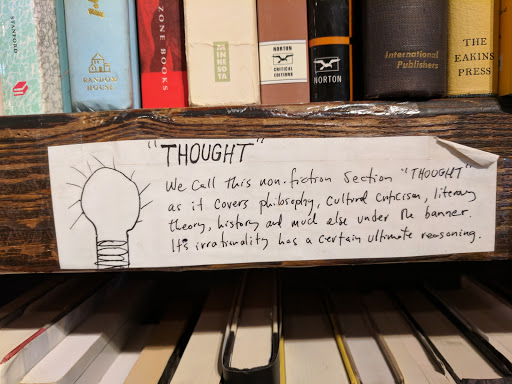 STANFORD
RANDOM
HOUSE
ZONE BOOKS
MINNESOTA
NORTON
CRITICAL
EDITIONS
NORTON
International
Publishers
THE
EAKINS
PRESS
"THOUGHT"
We Call this non-fiction Section "THOUGHT"
as it covers philosophy, cultural criticism, literary
theory, history and much else under the banner.
It's irrationality has a certain ultimate reasoning.